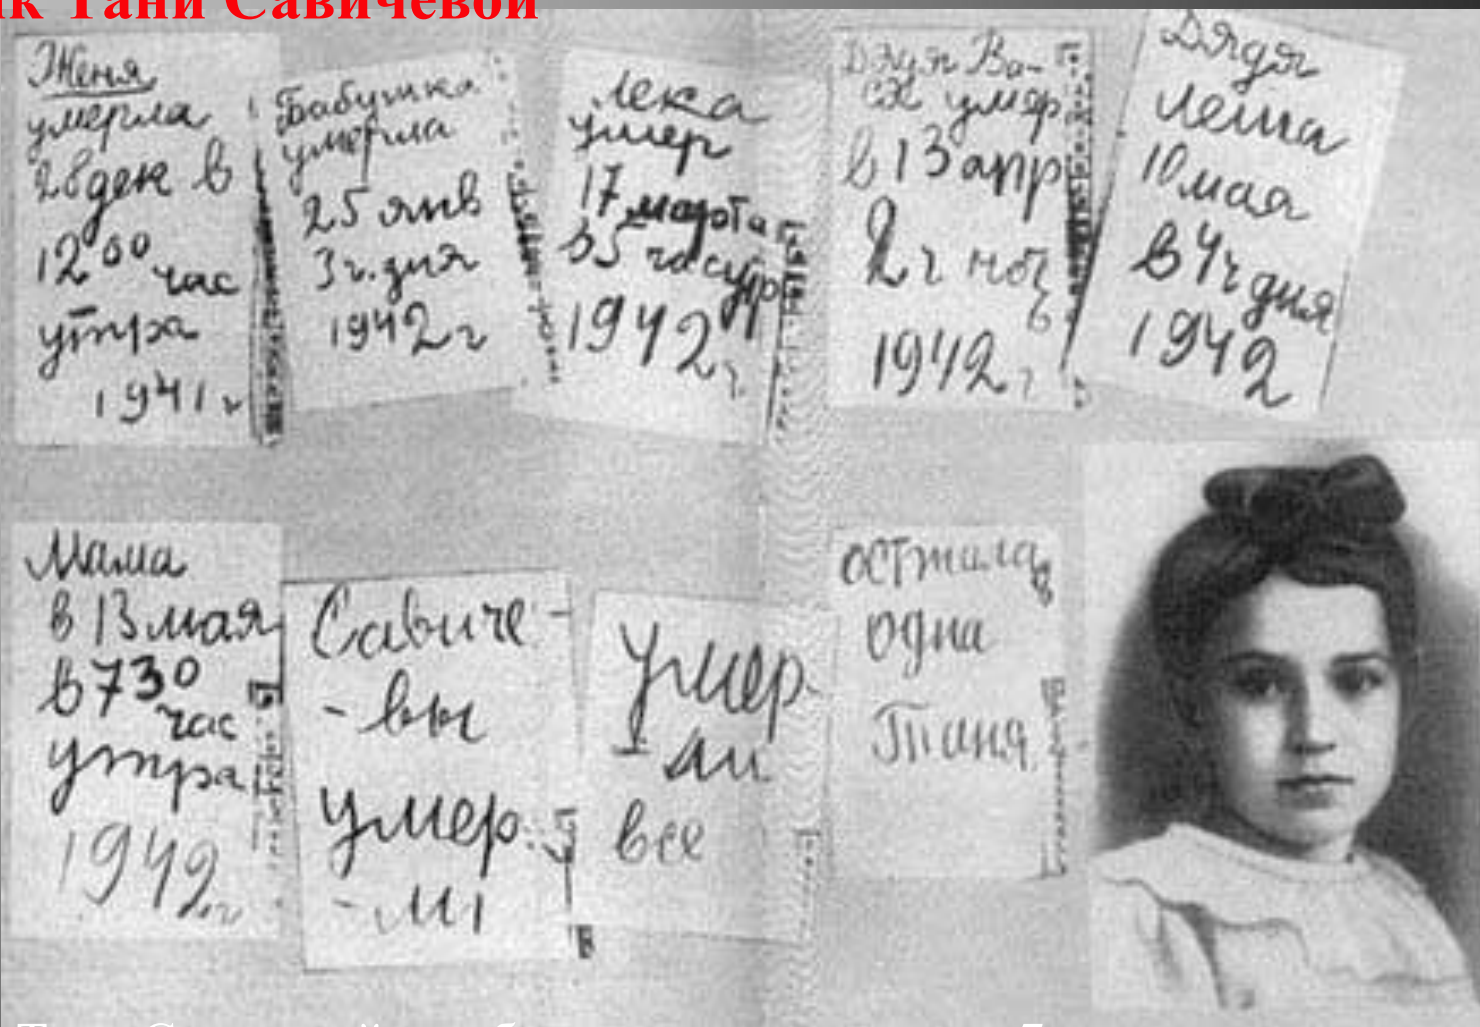 к Тани Савичевой
Женя
умерла
28 дек в
12 00 час
утра
1941 г
Бабушка
умерла
25 янв
3 ч. дня
1942 г
Лека
умер
17 марта
в 5 час утр
1942 г.
Дядя Ва-
ся умер
в 13 апр
2 ч ноч
ь
1942 г
Дядя
Леша
10 мая
в 4 ч дня
1942
Мама
в 13 мая
в 7 30
час
утра
1942 г
Савиче-
-вы
умер
-ли
Умер-
-ли
все
осталась
одна
Таня